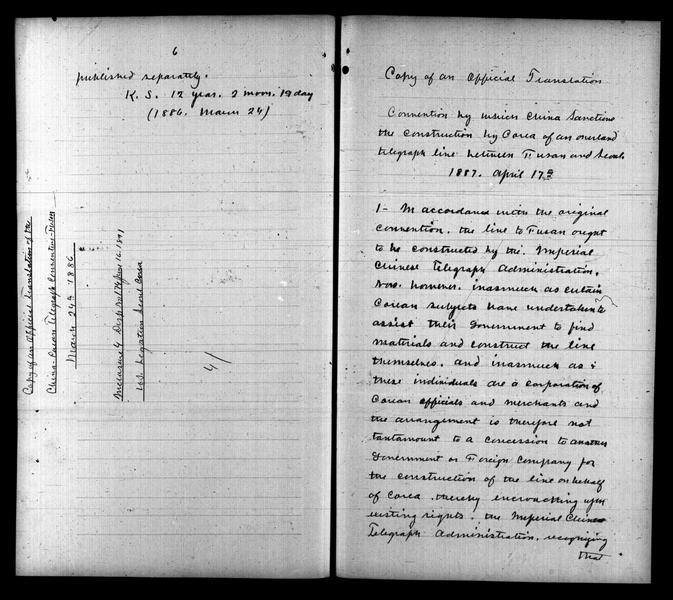 6
published separately.
K. S. 12 year. 2 moon. 19 day
(1886. March 24)
Copy of an Official Translation of the
China-Corean Telegraph Convention
March 24th 1886
Despatch 16. 1891
Legation Seoul Corea
4/
Copy of an Official Translation
Convention by which China Sanctions
the construction by Corea of an overland
telegraph line between Fusan and Seoul.
1887. April 17th
1- In accordance with the original
convention, the line to Fusan ought
to be constructed by the Imperial
Chinese Telegraph Administration.
Now, however, inasmuch as certain
Corean subjects have undertaken to
assist their Government to find
materials and construct the line
themselves, and inasmuch as
these individuals are a corporation of
Corean officials and merchants and
the arrangement is therefore not
tantamount to a concession to another
Government or Foreign Company for
the construction of the line on behalf
of Corea, thereby encroaching upon
existing rights, the Imperial Chinese
Telegraph Administration, recognizing
that